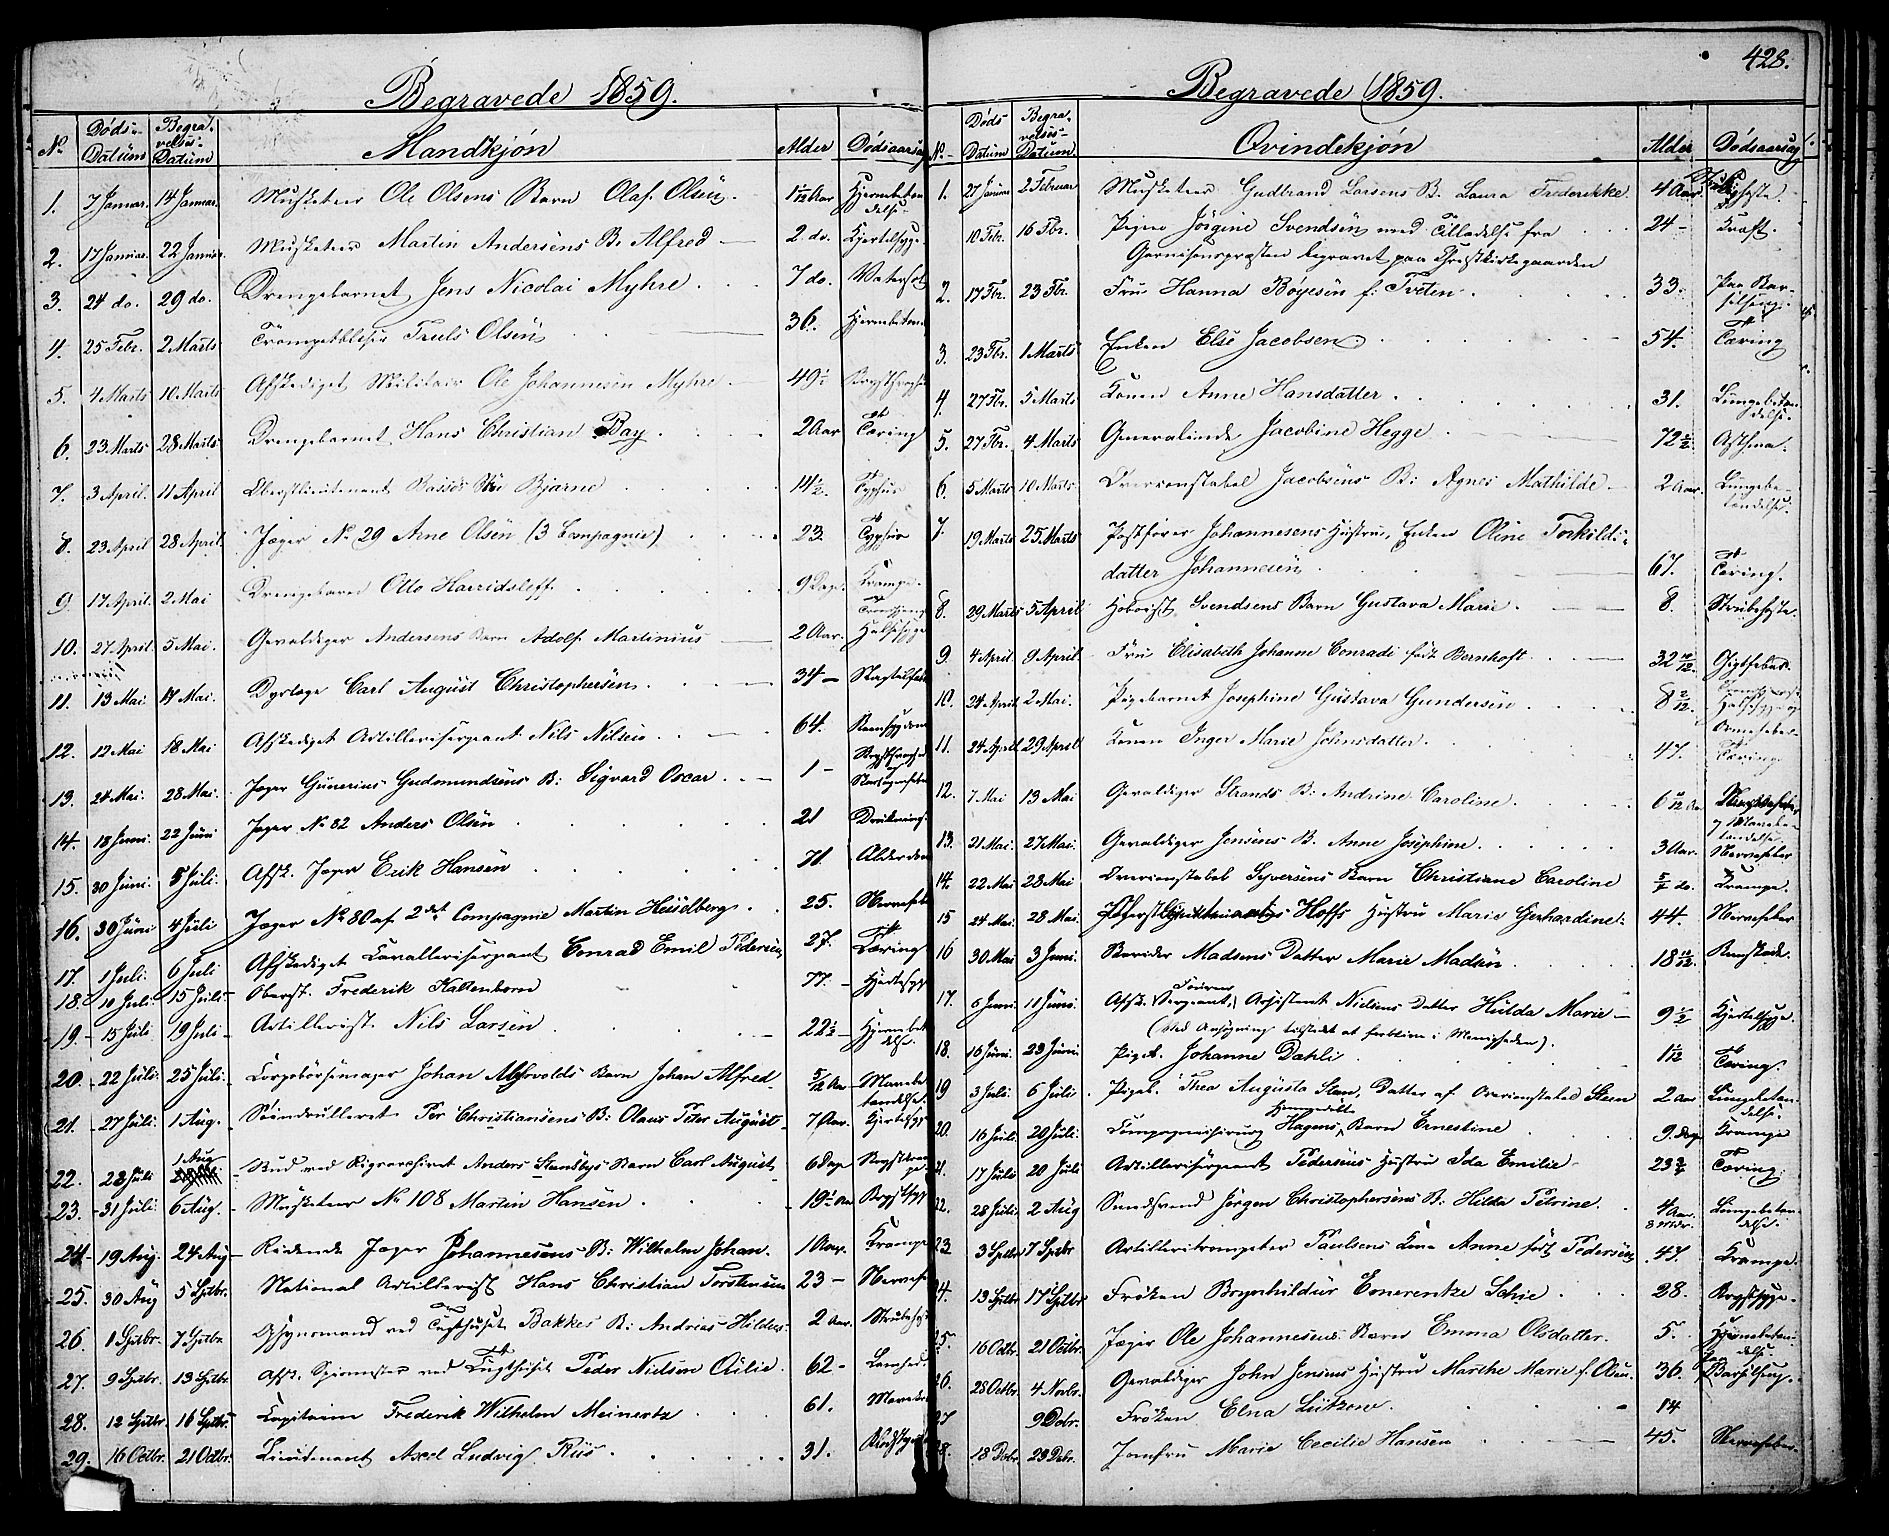 428.
Begravede 1859.
No. Døds- Datum Begravelses- Datum Mandkjøn Alder Dødsaarsag
1. 7 Januar. 14 Januar. Musketeer Ole Olsens Barn Olaf Olsen. 1 1/12 Aar Hjernebetændelse.
2. 17 Januar. 22 Januar. Musketeer Martin Andersens B: Alfred 2 do. Kjertelsyge.
3. 24 do. 29 do. Drengebarnet Jens Nicolai Myhre 7 do. Vatersot
4. 25 Febr. 2 Marts Trompetblæser Truls Olsen 36.
5. 4 Marts 10 Marts Afskediget Militair Ole Johannesen Myhre 49 1/2
6. 23 Marts 28 Marts Drengebarnet Hans Christian Bay 2 Aar Tæring
7. 3 April. 11 April Oberstlieutenant Bjarne 14 1/2. Typhus
8. 23 April 28 April. Jæger No 29 Arne Olsen (3 Compagnie) 23. Typhus
9. 17 April. 2 Mai Drengebarn Otto Harridsleff 9 Dage. Krampe.
10. 27 April. 5 Mai. Gevaldiger Andersens Barn Adolf Martinius 2 Aar. Halssyge
11. 13 Mai 17 Mai. Dyrlæge Carl August Christophersen. 34
12. 12 Mai 18 Mai Afskediget Artillerisergeant Nils Nilsen 64.
13. 24 Mai. 28 Mai. Jæger Gunerius Gudmundsens B: Sigvard Oscar 1
14. 18 Juni. 22 Juni Jæger No 82 Anders Olsen 21 Drukning.
15. 30 Juni. 5 Juli. Afsk. Jæger Erik Hansen 71. Alderdom
16. 30 Juni 4 Juli Jæger No 80 af 2det Compagnie Martin Hesselberg 25. Nervefeber
17. 1 Juli. 6 Juli Afskediget Cavallerisergeant Conrad Emil Pedersen 27. Tæring
18. 10 Juli. 15 Juli Oberst. Frederik Kaltenborn 77. Hjertesyge
19 15 Juli 19 Juli Artillerist Nils Larsen 22 1/2
20. 22 Juli. 25 Juli. Johan Barn Johan Alfred 5/12 Aar
21. 27 Juli. 1 Aug. Per Christiansens B: Olaus Peter August 7 Aar.
22. 28 Juli 1 Aug Bud ved Rigsarchivet Anders Barn Carl August 6 Dage
23. 31 Juli. 6 Aug. Musketeer No 108 Martin Hansen 19 1/2 Aar Brystsyge
24 19 Aug. 24 Aug Ridende Jæger Johannesens B: Wilhelm Johan. Krampe
25. 30 Aug 5 Sptbr. National Artillerist Hans Christian Torstensen 23 Nervefeber
26. 1 Sptbr. 7 Sptbr. Opsynsmand ved Tugthuset Bakkes B: Andreas 2 Aar. Strubehoste
27. 9 Sptbr. 13 Sptbr. Afsk. ved Tugthuset Peder Nielsen 62
28. 12 Sptbr. 16 Sptbr. Kapitain Frederik Wilhelm Meinertz 61.
29. 16 Octbr. 21 Octbr. Lieutenant Axel Ludvig Riis 31.
Begravede 1859.
No. Døds Datum Begravelses- Datum. Qvindekjøn Alder Dødsaarsag
1. 27 Januar 2 Februar Musketeer Gudbrand Larsens B. Laura Frederikke. 4 Aar.
10 Febr. 16 Fbr. Pigen Jörgine Svendsen med Tilladelse fra 24 Kræft.
Garnisonspræsten begravet paa Christkirkegaarden
2. 17 Fbr. 23 Fbr. Fru Hanna Boyesen f: Tveten 33. Paa Barselseng.
3. 23 Fbr. 1 Marts Enken Else Jacobsen 54. Tæring
4. 27 Fbr. 5 Marts Konen Anne Hansdatter 31. Lungebetændelse.
5. 27 Fbr. 4 Marts Generalinde Jacobine Hegge 72 1/2 Asthma.
6. 5 Marts 10 Marts Overconstabel Jacobsens B: Agnes Mathilde 2 Aar. Lungebetændelse.
7. 19 Marts 25 Marts Postfører Johannesens Hustru, Enken Oline Torkilds-
datter Johannesen 67. Tæring.
8. 29 Marts 5 April Hoboist Svendsens Barn Gustava Marie. 8. Strubehoste.
9. 4 April. 9 April. Fru Elisabeth Johanne Conradi født Bernhoft. 32 10/12. Gigtfeber.
10. 24 April 2 Mai. Pigebarnet Josephine Gustava Gundersen 8 2/12.
11. 24 April 29 April Konen Inger Marie Johnsdatter. 47. Tæring
12. 7 Mai 13 Mai Gevaldiger Strands B: Andrine Caroline.
13. 21 Mai. 27 Mai. Gevaldiger Jensens B. Anne Josephine. 3 Aar. Nervefeber
14. 22 Mai 28 Mai Overconstabel Syversens Barn Christiane Caroline Krampe.
15 24 Mai. 28 Mai. Hoffs Hustru Marie Gerhardine. 44. Nervefeber
16 30 Mai 3 Juni. Berider Madsens Datter Marie Madsen 18
17. 6 Juni. 11 Juni. Afsk. Sergeant, Assistent Nielsens Datter Hulda Marie 9 1/2 Kjertelsyge.
(Med Ansøgning tilstedet at i Menigheden).
18. 16 Juni. 23 Juni. Pigeb. Johanne Dahli 1 1/12 Tæring.
19 3 Juli. 6 Juli. Pigeb. Thea Augusta Steen, Datter af Overconstabel Steen 2 Aar Lungebetændelse.
20. 16 Juli. 20 Juli. Hagens Barn Ernestine 9. Dage Krampe
21. 17 Juli 20 Juli Artillerisergeant Pedersens Hustru Ida Emilie 23 Tæring.
22. 28 Juli. 2 Aug Jørgen Christophersens B. Hilda Petrine. 4 Aar 3 Mdr. Lungebetændelse.
23 3 Sptbr 7 Sptbr Artilleritrompeter Paulsens Kone Anne født Pedersen 47. Krampe.
24. 13 Sptbr 17 Sptbr Frøken Brynhildur Schie 28. Brystsyge.
25. 16 Octbr. 21 Octbr. Jæger Ole Johannesens Barn Emma Olsdatter. 5. Hjernebetændelse.
26. 28 Octbr. 4 Novbr. Gevaldiger John Jensens Hustru Marthe Marie f. Olsen. 36. Barselseng.
27 9 Dcbr. Frøken Elna Lützow. 14
28. 18 Dcbr. 23 Dcbr. Jomfru Marie Cecilie Hansen 45. Nervefeber.